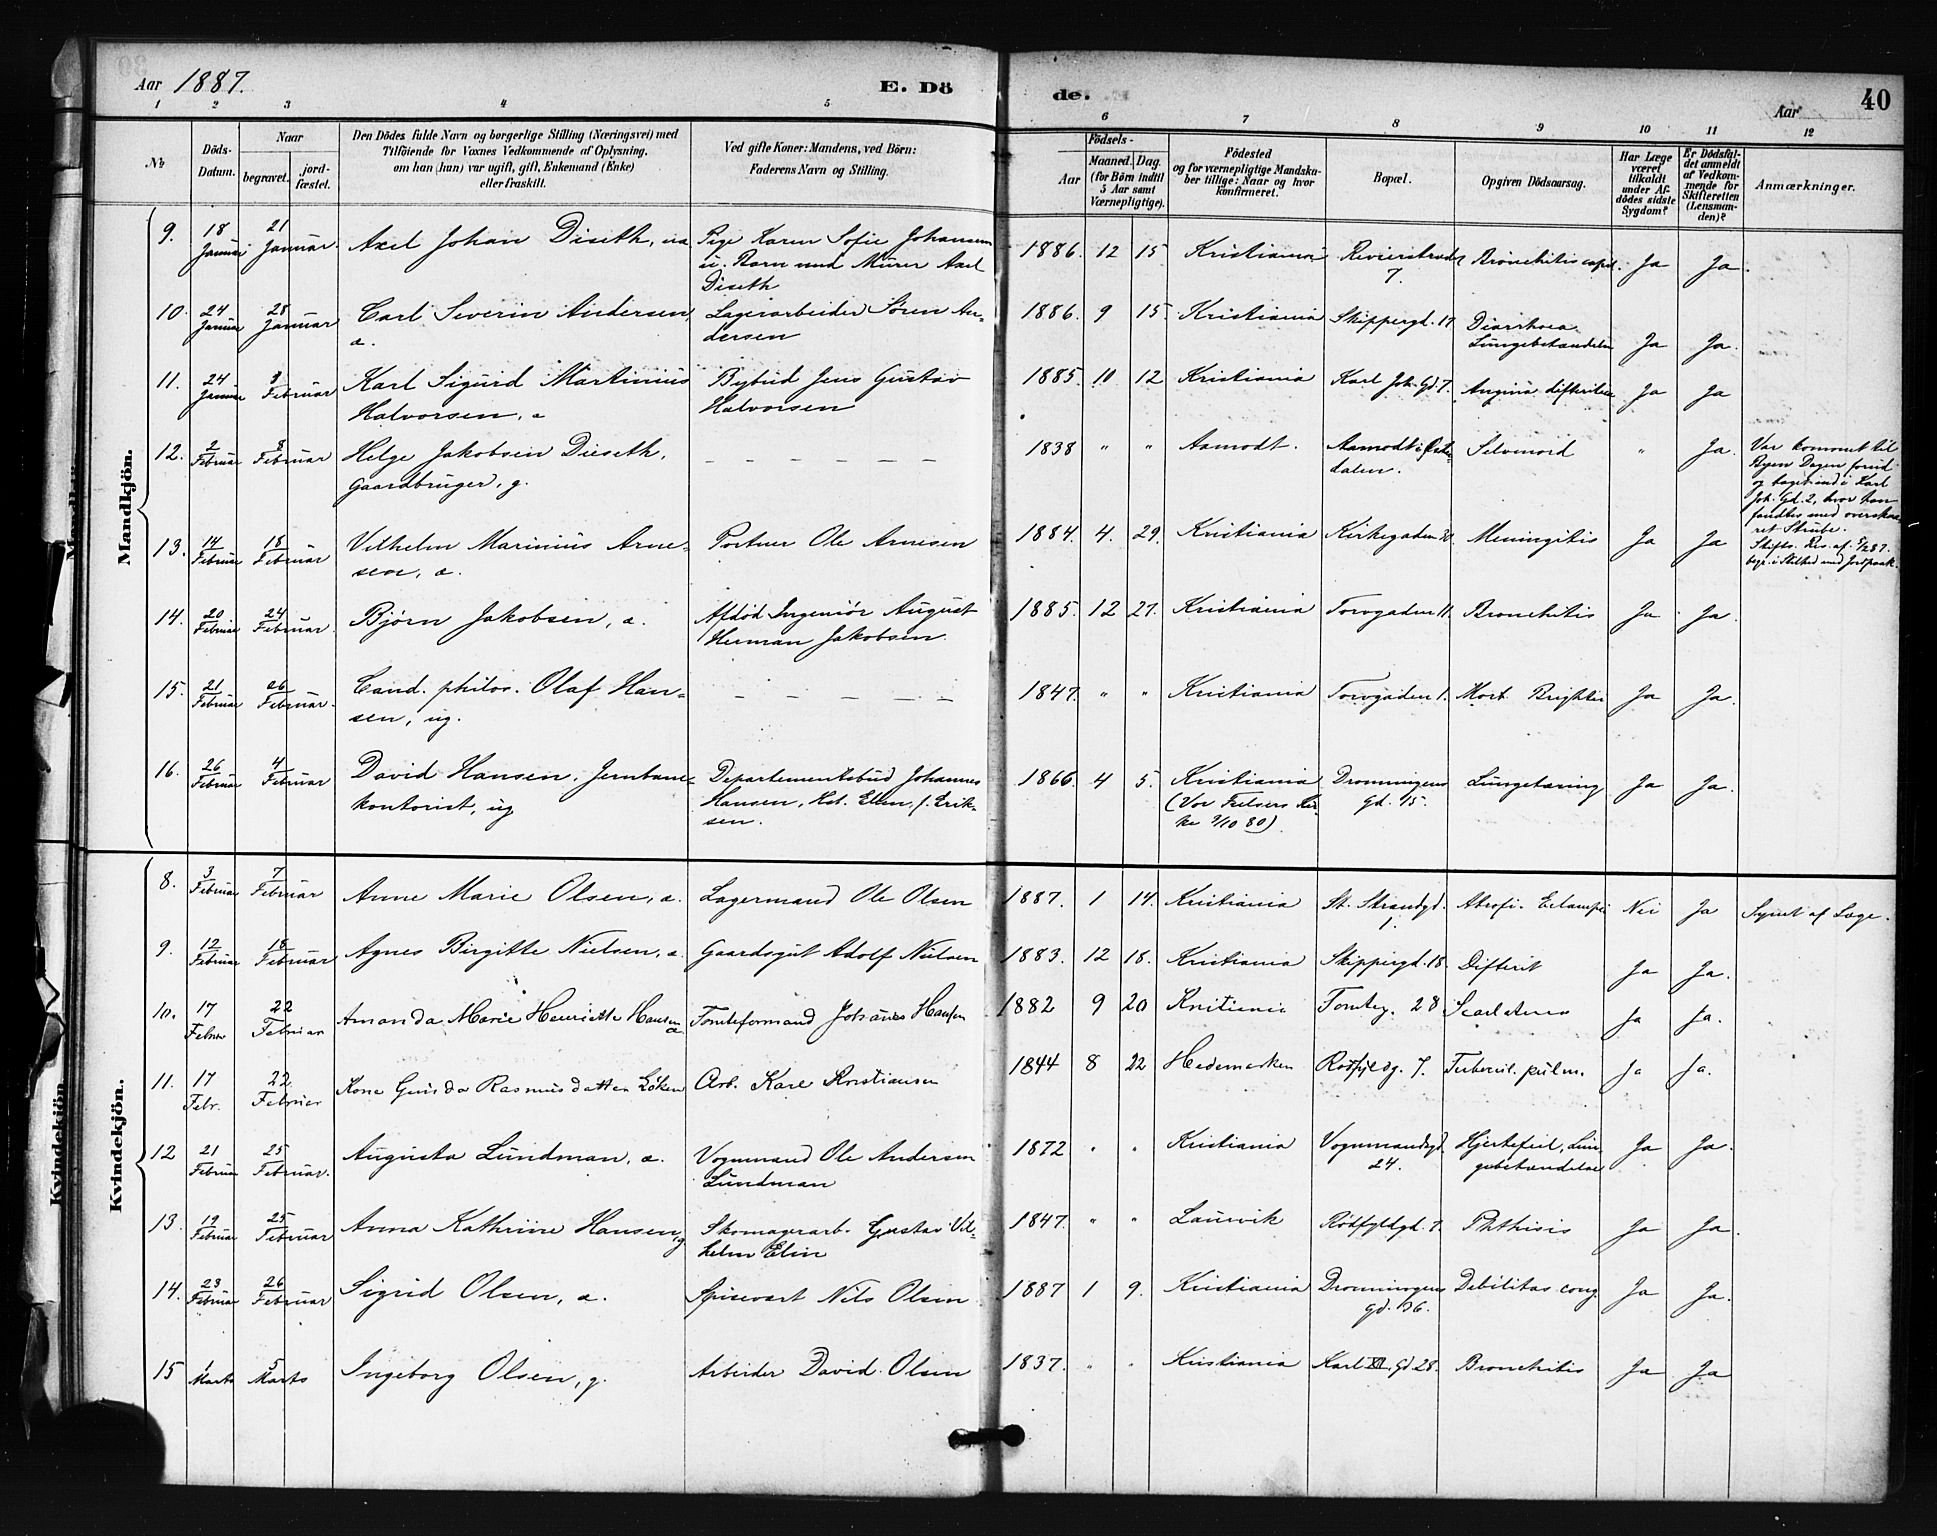 Aar 1887.
E. Dö
de.
Aar
40
1 2 3 4 5 6 7 8 9 10 11 12
No
Döds-
Datum.
Naar
begravet.
jord-
fæstet.
Den Dödes fulde Navn og borgerlige Stilling (Næringsvei) med
Tilföiende for Voxnes Vedkommende af Oplysning,
om han (hun) var ugift, gift, Enkemand (Enke)
eller fraskilt.
Ved gifte Koner: Mandens, ved Börn:
Faderens Navn og Stilling.
Födsels-
Aar
Maaned. Dag.
(for Börn indtil
5 Aar samt
Værnepligtige).
Födested
og for værnepligtige Mandska-
ber tillige: Naar og hvor
konfirmeret.
Bopæl.
Opgiven Dödsaarsag.
Har Læge
været
tilkaldt
under Af-
dödes sidste
Sygdom?
Er Dödsfal-
det anmeldt
af Vedkom-
mende for
Skifteretten
(Lensman-
den)?
Anmærkninger.
Mandkjön.
9. 18 Januar 21 Januar. Axel Johan Diseth, Pige Karen Sofie Johansen 1886. 12 15 Kristiania 7. Bronchitis Ja Ja.
u. Barn med Murer Axel
Diseth
10. 24 Januar 28 Januar Carl Severin Andersen, Lagerarbeider Søren An- 1886. 9 15. Kristiania Skippergd. 17 Diarrhoea Ja Ja.
a. dersen Lungebetændelse
11. 24 Januar 3 Februar Karl Sigurd Martinius Bybud Jens Gustav 1885. 10 12 Kristiania Karl Joh. Gd. 7. Angina difteritica Ja Ja
Halvorsen, a Halvorsen
12. 2 Februar 8 Februar Helge Jakobsen Dieseth, – – – – – 1838 " " Aamodt. Aamodt i Øster- Selvmord " Ja.
Gaardbruger, g. dalen.
Var kommet til
Byen Dagen forud
og taget ind i Karl
Joh. Gd. 2, hvor han
fandtes med overskaa-
ret Strube.
Skifts. Res. af
begr. i Stilhed med Jordpaak.
13. 14 Februar 18 Februar Vilhelm Marinius Arne- Portner Ole Arnesen 1884. 4. 29. Kristiania Kirkegaden Meningitis Ja Ja
sen, a.
14. 20 Februar 24 Februar. Bjørn Jakobsen, a. Afdød Ingeniør August 1885. 12 27. Kristiania Torvgaden 11. Bronchitis Ja Ja.
Herman Jakobsen.
15. 21 Februar 26 Februar. Cand. philos. Olaf Han- – – – – – 1847. " " Kristiania Torvgaden 1. Morb. Brightii Ja Ja.
sen, ug.
16. 26 Februar 4 Februar David Hansen, Jernbane- Departementsbud Johannes 1866 4 5. Kristiania Dronningens Lungetæring Ja Ja.
kontorist, ug Hansen, Hst. Ellen f. Erik- (Vor Frelsers Kir- Gd. 15.
sen. ke 3/10 80)
Kvindekjön.
8. 3 Februar 7 Februar Anne Marie Olsen, a. Lagermand Ole Olsen 1887. 1 14. Kristiania St. Strandgd. 1. Atrofi. Eclampsi Nei Ja Synet af Læge.
9. 12 Februar 18 Februar Agnes Birgitte Nielsen, a. Gaardsgut Adolf Nielsen 1883. 12 18. Kristiania Skippergd. 18. Difterit Ja Ja.
10. 17 Februar 22 Februar Amanda Marie Henriette Hansen a Tomteformand Johannes Hansen 1882 9 20 Kristiania Tomteg. 28 Scarlatina Ja Ja.
11. 17 Febr. 22 Februar Kone Gunda Rasmusdatter Løken Arb. Karl Kristiansen 1844 8 22 Hedemarken Rødfyldg. 7. Tubercul. pulm. Ja Ja.
12 21 Februar 25 Februar. Augusta Lundman, a. Vognmand Ole Andersen 1872 " " Kristiania Vognmandsgd. Hjertefeil, Lun- Ja Ja.
Lundman 24. gebetændelse
13. 19 Februar 25 Februar Anna Kathrine Hansen, g Skomagerarb. Gustav Vil- 1847. " " Laurvik Rødfyldgd. 7. Phthisis Ja Ja.
helm Elin
14. 23 Februar 26 Februar Sigrid Olsen, a. Spisevært Nils Olsen 1887 1 9. Kristiania Dronningens Debilitas cong. Ja Ja.
Gd. 36.
15 1 Marts 5 Marts Ingeborg Olsen, g. Arbeider David Olsen 1837. " " Kristiania Karl XII Gd 28. Bronchitis Ja Ja
Mandkjön
Kvindekjön